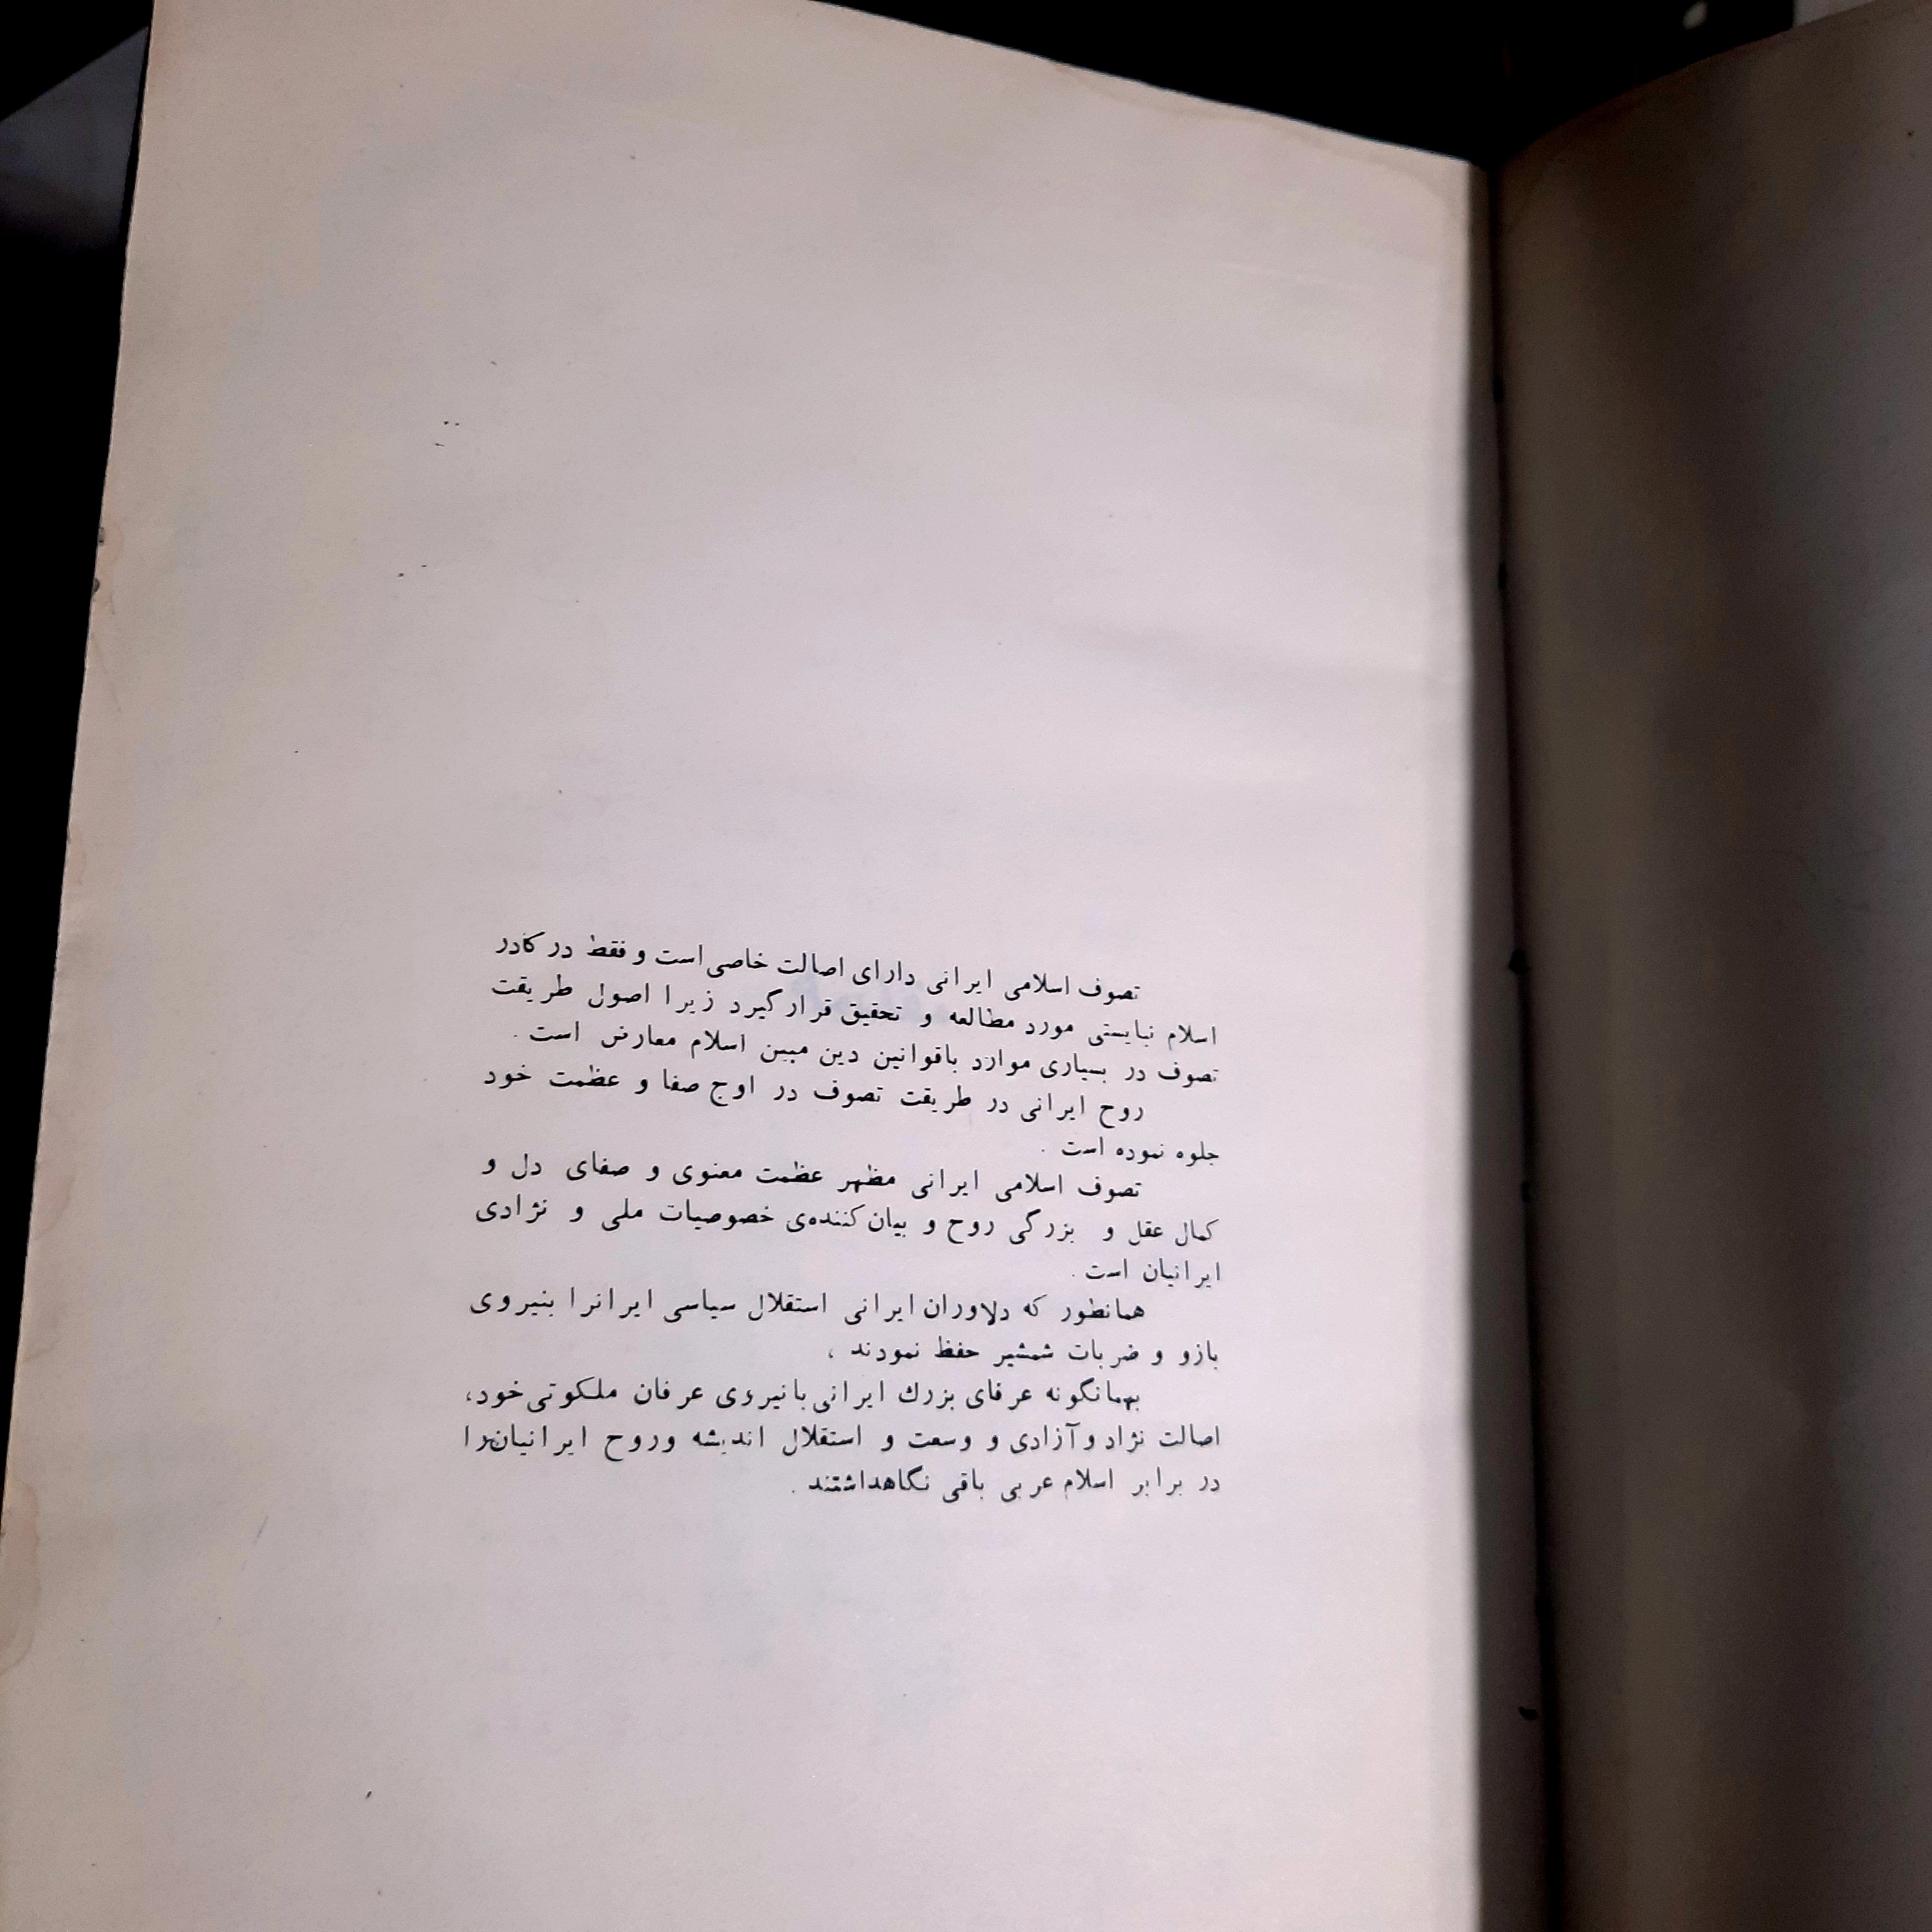 تصوف اسلامی ایرانی دارای اصالت خاصی است و فقط در کادر
اسلام نبایستی مورد مطالعه و تحقیق قرار گیرد زیرا اصول طریقت
تصوف در بسیاری موارد باقوانین دین مبین اسلام معارض است .
روح ایرانی در طریقت تصوف در اوج صفا و عظمت خود
جلوه نموده است .
تصوف اسلامی ایرانی مظهر عظمت معنوی و صفای دل و
کمال عقل و بزرگی روح و بیان کننده‌ی خصوصیات ملی و نژادی
ایرانیان است .
همانطور که دلاوران ایرانی استقلال سیاسی ایرانرا بنیروی
بازو و ضربات شمشیر حفظ نمودند ،
بهمانگونه عرفای بزرك ایرانی بانیروی عرفان ملکوتی خود،
اصالت نژاد و آزادی و وسعت و استقلال اندیشه وروح ایرانیان را
در برابر اسلام عربی باقی نگاهداشتند .